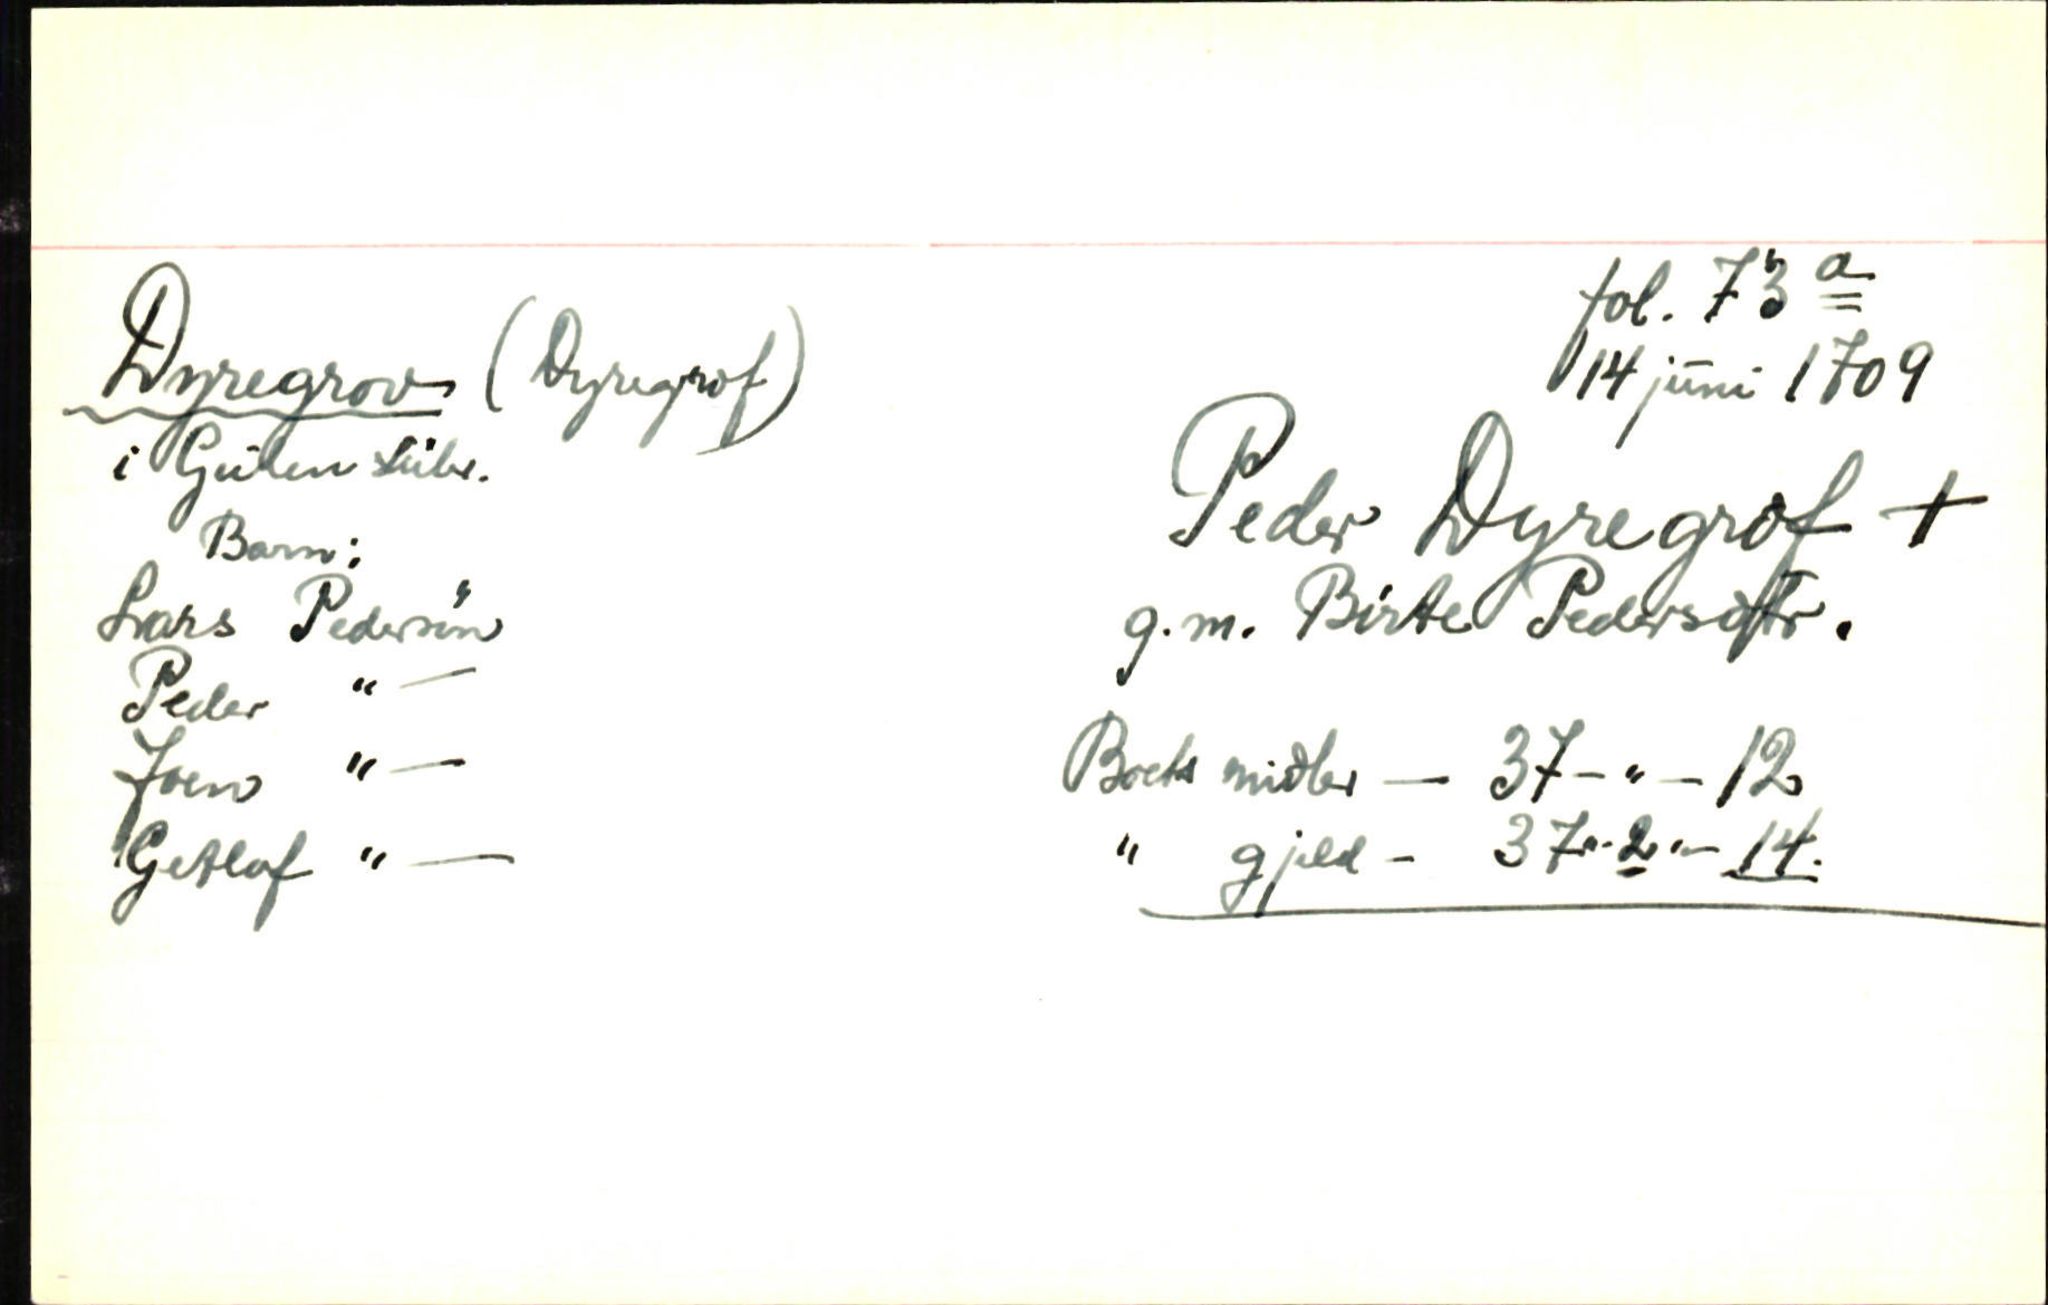 fol. 73 a
14 juni 1709
Dyregrov (Dyregrof)
i Gulen skibr.
Barn:
Lars Pedersøn
Peder " —
Joen " —
Getlof " —
Peder Dyregrof +
g.m. Birte Pedersdtr.
Boets midler — 37 - " - 12
" gjeld - 37 " - 2 " - 14.